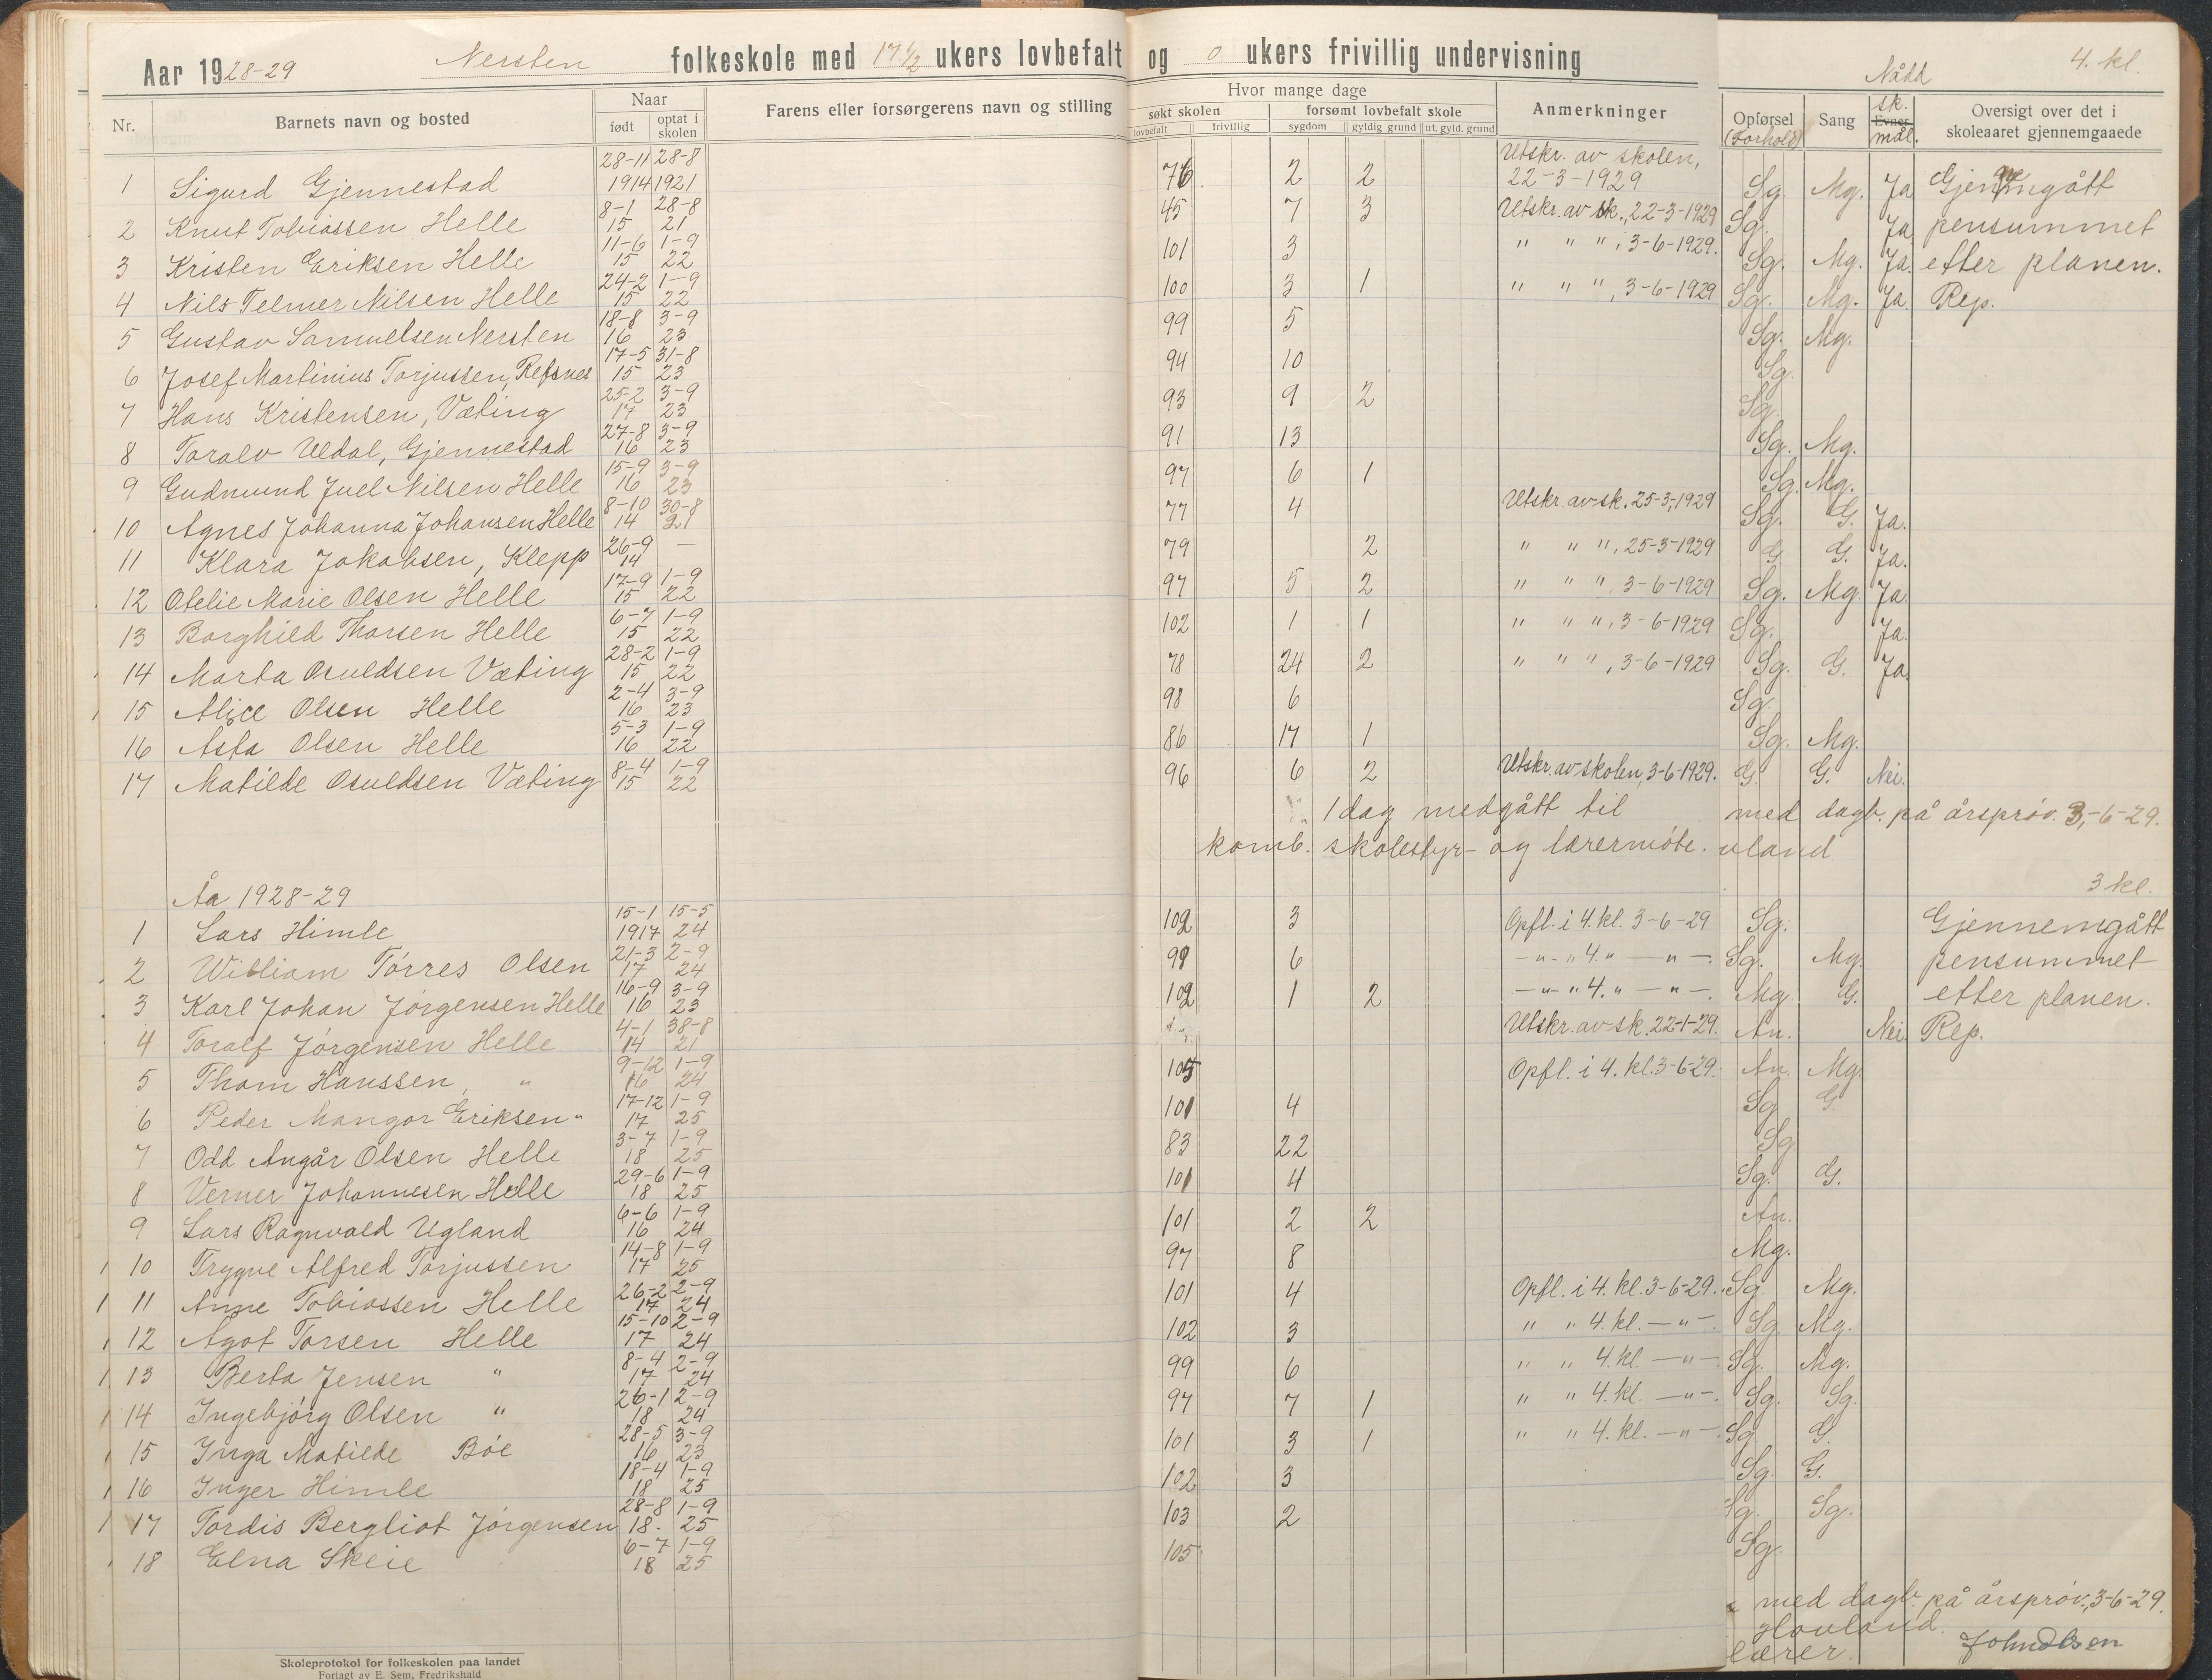 Aar 1928-29 Nersten folkeskole med 17 1/2 ukers lovbefalt og 0 ukers frivillig undervisning
Nådd 4. kl.
Nr. Barnets navn og bosted Naar født optat i skolen Farens eller forsørgerens navn og stilling Hvor mange dage søkt skolen lovbefalt frivillig forsømt lovbefalt skole sygdom gyldig grund ut. gyld. grund Anmerkninger Opførsel (Forhold) Sang Evner sk. mål. Oversigt over det i skoleaaret gjennemgaaede
1 Sigurd Gjennestad 28-11 1914 28-8 1921 76 2 2 Utskr. av skolen, 22-3-1929 Sg. Mg. Ja Gjennemgått
2 Knut Tobiassen Helle 8-1 15 28-8 21 45 7 3 Utskr. av sk., 22-3-1929 Sg. Ja pensummet
3 Kristen Eriksen Helle 11-6 15 1-9 22 101 3 " " ", 3-6-1929. Sg. Mg. Ja. efter planen.
4 Nils Telmer Nilsen Helle 24-2 15 1-9 22 100 3 1 " " ", 3-6-1929 Sg. Mg. Ja. Rep.
5 Gustav Samuelsen Nersten 18-8 16 3-9 23 99 5 Sg. Mg.
6 Josef Martinius Torjussen, Refsnes 17-5 15 31-8 23 94 10 Sg.
7 Hans Kristensen, Væting 25-2 17 3-9 23 93 9 2 Sg.
8 Toralv Uldal, Gjennestad 27-8 16 3-9 23 91 13 Sg. Mg.
9 Gudmund Juel Nilsen Helle 15-9 16 3-9 23 97 6 1 Sg. Mg.
10 Agnes Johanna Johansen Helle 8-10 14 30-8 21 77 4 Utskr. av sk. 25-3-1929 Sg. G. Ja.
11 Klara Jakobsen, Klepp 26-9 14 — 79 2 " " ", 25-3-1929 G. G. Ja.
12 Otelie Marie Olsen Helle 17-9 15 1-9 22 97 5 2 " " ", 3-6-1929 Sg. Mg. Ja.
13 Borghild Thorsen Helle 6-7 15 1-9 22 102 1 1 " " ", 3-6-1929 Sg. Ja.
14 Marta Osuldsen Væting 28-2 15 1-9 22 78 24 2 " " ", 3-6-1929 Sg. G. Ja.
15 Alice Olsen Helle 2-4 16 3-9 23 98 6 Sg.
16 Asta Olsen Helle 5-3 16 1-9 22 86 17 1 Sg. Mg.
17 Matilde Osuldsen Væting 8-4 15 1-9 22 96 6 2 Utskr. av skolen, 3-6-1929. G. G. Nei.
1 dag medgått til med dagb. på årsprøv. 3-6-29.
komb. skolestyr- og lærermøte. uland
Åa 1928-29 3 kl.
1 Lars Himle 15-1 1917 15-5 24 102 3 Opfl. i 4. kl. 3-6-29 Sg. Gjennemgått
2 William Tørres Olsen 21-3 17 2-9 24 99 6 -"- " 4. " — " —. Sg. Mg. pensummet
3 Karl Johan Jørgensen Helle 16-9 16 3-9 23 102 1 2 -"- " 4. " — " —. Mg. G. efter planen.
4 Toralf Jørgensen Helle 4-1 14 38-8 21 Utskr. av sk. 22-1-29. An. Nei. Rep.
5 Thom Hanssen, " 9-12 16 1-9 24 105 Opfl. i 4. kl. 3-6-29. An. Mg.
6 Peder Mangor Eriksen " 17-12 17 1-9 25 101 4 Sg G
7 Odd Angår Olsen Helle 3-7 18 1-9 25 83 22 Sg
8 Verner Johannesen Helle 29-6 18 1-9 25 101 4 Sg. G.
9 Lars Ragnvald Ugland 6-6 16 1-9 24 101 2 2 An.
10 Trygve Alfred Torjussen 14-8 17 1-9 25 97 8 Mg.
11 Anne Tobiassen Helle 26-2 17 2-9 24 101 4 Opfl. i 4. kl. 3-6-29. Sg. Mg.
12 Agot Torsen Helle 15-10 17 2-9 24 102 3 " " 4. kl. — " —. Sg. Mg.
13 Berta Jensen " 8-4 17 2-9 24 99 6 " " 4. kl. — " —. Sg. Mg.
14 Ingebjørg Olsen " 26-1 18 2-9 24 97 7 1 " " 4. kl. — " —. Sg. Sg.
15 Inga Matilde Bøe 28-5 16 3-9 23 101 3 1 " " 4. kl. — " —. Sg. G.
16 Inger Himle 18-4 18 1-9 25 102 3 Sg. G.
17 Tordis Bergliot Jørgensen 28-8 18. 1-9 25 103 2 Sg. Sg.
18 Elna Skeie 6-7 18 1-9 25 105 Sg.
med dagb. på årsprøv., 3-6-29.
Hovland.
lærer. John Olsen
Skoleprotokol for folkeskolen paa landet
Forlagt av E. Sem, Fredrikshald